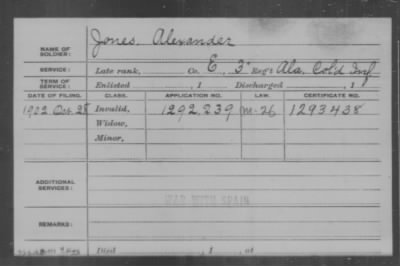 NAME OF SOLDIER: Jones, Alexander
SERVICE: Late rank, Co. E, 3" Reg't Ala. Col'd Inf
TERM OF SERVICE: Enlisted , 1 Discharged , 1
DATE OF FILING. CLASS. APPLICATION NO. LAW. CERTIFICATE NO.
1902 Oct. 28 Invalid, 1292,239 M-26 1293438
Widow,
Minor,
ADDITIONAL SERVICES:
WAR WITH SPAIN
REMARKS:
Died , 1 , at